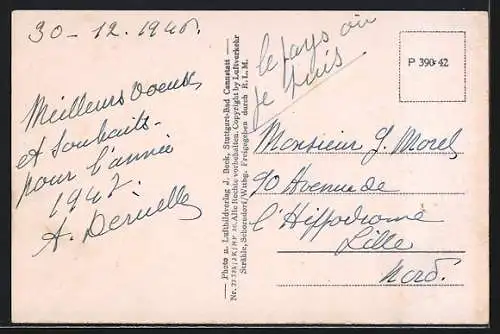 30-12.1946.
Meilleurs voeux
et souhaits
pour l'année
1947.
A. Deruelle
Photo u. Luftbildverlag J. Beck, Stuttgart-Bad Cannstatt
Alle Rechte vorbehalten. Copyright by Luftverkehr
Strähle, Schorndorf/Wttbg. Freigegeben durch R.L.M.
le pays où
je suis
P 390-42
Monsieur G. Morel
90 Avenue de
l'Hippodrome
Lille
Nord.